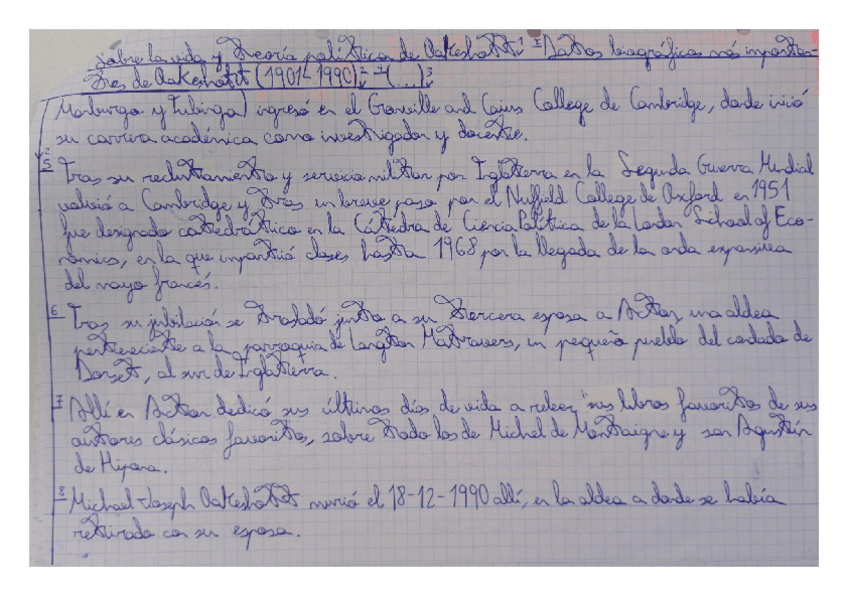 Sobre la vida y teoría política de Oakeshott: I Datos biográficos más importan-
tes de Oakeshott (1901-1990): 4(...)3
Marburgo y Tubinga) ingresó en el Gonville and Caius College de Cambridge, donde inició
su carrera académica como investigador y docente.
5 Tras su reclutamiento y servicio militar por Inglaterra en la Segunda Guerra Mundial
volvió a Cambridge y tras un breve paso por el Nuffield College de Oxford en 1951
fue designado catedrático en la Cátedra de Ciencia Política de la London School of Eco-
nomics, en la que impartió clases hasta 1968 por la llegada de la onda expansiva
del mayo francés.
6 Tras su jubilación se trasladó junto a su tercera esposa a Acton, una aldea
perteneciente a la parroquia de Langton Matravers, un pequeño pueblo del condado de
Dorset, al sur de Inglaterra.
7 Allí en Acton dedicó sus últimos días de vida a releer sus libros favoritos de sus
autores clásicos favoritos, sobre todo los de Michel de Montaigne y san Agustín
de Hipona.
8 Michael Joseph Oakeshott murió el 18-12-1990 allí, en la aldea a donde se había
retirado con su esposa.